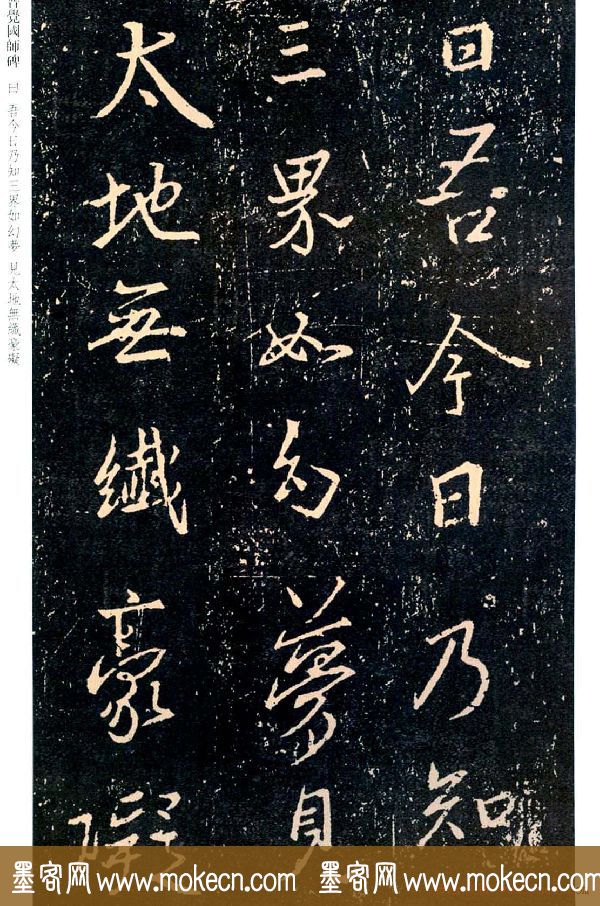 曰吾今日乃知
三界如幻夢見
太地無纖豪礙
普覺國師碑 曰 吾今日乃知三界如幻夢 見太地無纖豪礙
墨客网 www.mokecn.com 墨客网 www.mokecn.com